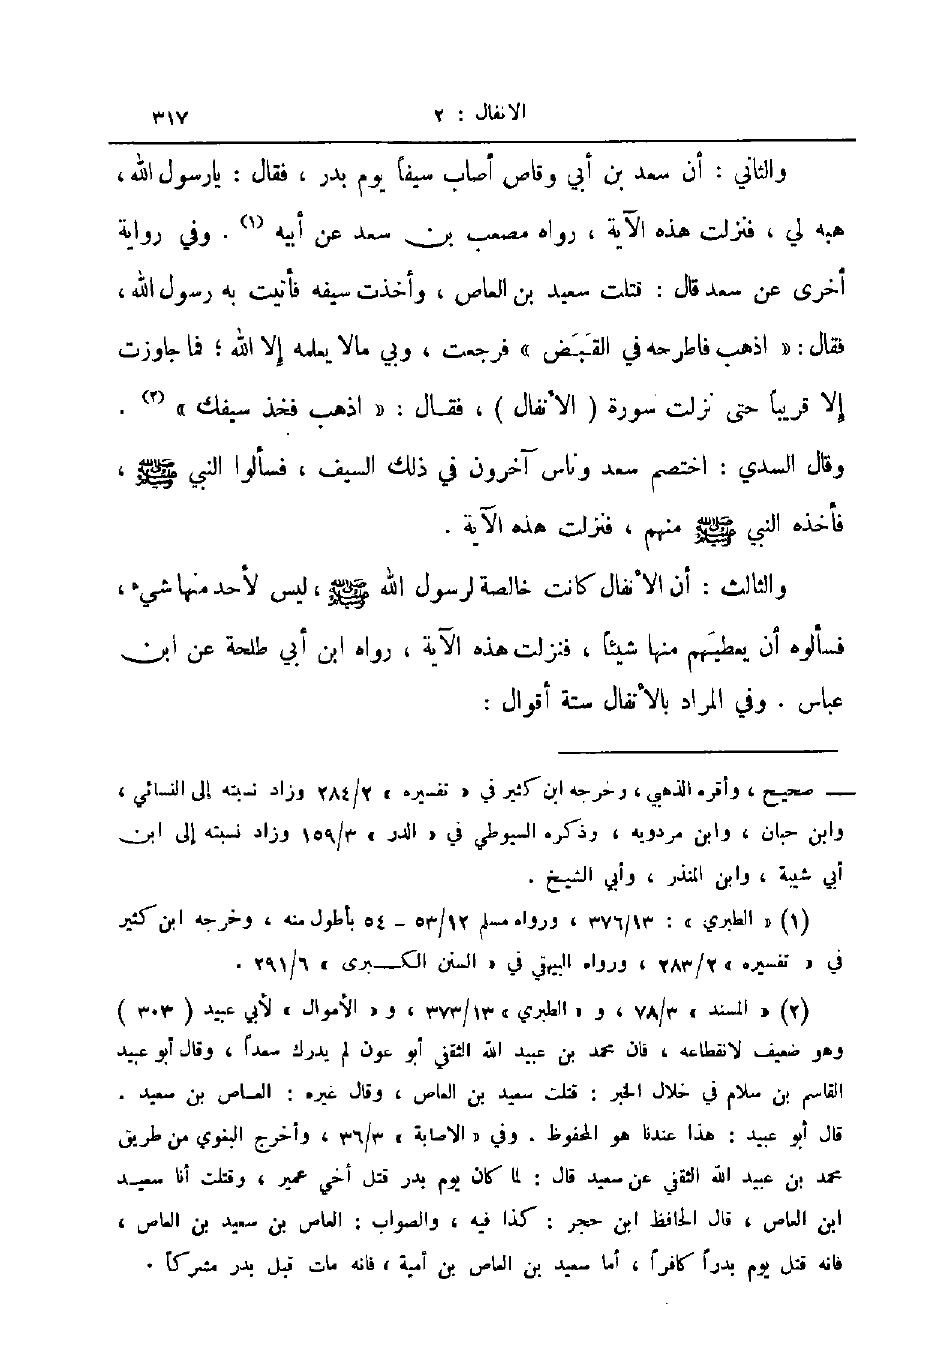 الانفال : ٢ ٣١٧
والثاني : أن سعد بن أبي وقاص أصاب سيفاً يوم بدر ، فقال : يارسول الله ،
هبه لي ، فنزلت هذه الآية ، رواه مصعب بن سعد عن أبيه (١) . وفي رواية
أخرى عن سعد قال : قتلت سعيد بن العاص ، وأخذت سيفه فأتيت به رسول الله ،
فقال : « اذهب فاطرحه في القَبَض » فرجعت ، وبي مالا يعلمه إلا الله ؛ فما جاوزت
إلا قريباً حتى نزلت سورة ( الأنفال ) ، فقال : « اذهب فخذ سيفك » (٢) .
وقال السدي : اختصم سعد وناس آخرون في ذلك السيف ، فسألوا النبي ﷺ ،
فأخذه النبي ﷺ منهم ، فنزلت هذه الآية .
والثالث : أن الأنفال كانت خالصة لرسول الله ﷺ ، ليس لأحد منها شيء ،
فسألوه أن يعطيَهم منها شيئاً ، فنزلت هذه الآية ، رواه ابن أبي طلحة عن ابن
عباس . وفي المراد بالأنفال ستة أقوال :
ـــ صحيح ، وأقره الذهبي ، وخرجه ابن كثير في « تفسيره » ٢٨٤/٢ وزاد نسبته إلى النسائي ،
وابن حبان ، وابن مردويه ، وذكره السيوطي في « الدر » ١٥٩/٣ وزاد نسبته إلى ابن
أبي شيبة ، وابن المنذر ، وأبي الشيخ .
(١) « الطبري » : ٣٧٦/١٣ ، ورواه مسلم ٥٣/١٢ – ٥٤ بأطول منه ، وخرجه ابن كثير
في « تفسيره » ٢٨٣/٢ ، ورواه البيهقي في « السنن الكبرى » ٢٩١/٦ .
(٢) « المسند » ٧٨/٣ ، و « الطبري » ٣٧٣/١٣ ، و « الأموال » لأبي عبيد ( ٣٠٣ )
وهو ضعيف لانقطاعه ، فان محمد بن عبيد الله الثقفي أبو عون لم يدرك سعداً ، وقال أبو عبيد
القاسم بن سلام في خلال الخبر : قتلت سعيد بن العاص ، وقال غيره : العاص بن سعيد .
قال أبو عبيد : هذا عندنا هو المحفوظ . وفي « الاصابة » ٣٦/٣ ، وأخرج البغوي من طريق
محمد بن عبيد الله الثقفي عن سعيد قال : لما كان يوم بدر قتل أخي عمير ، وقتلت أنا سعيد
ابن العاص ، قال الحافظ ابن حجر : كذا فيه ، والصواب : العاص بن سعيد بن العاص ،
فانه قتل يوم بدراً كافراً ، أما سعيد بن العاص بن أمية ، فانه مات قبل بدر مشركاً .